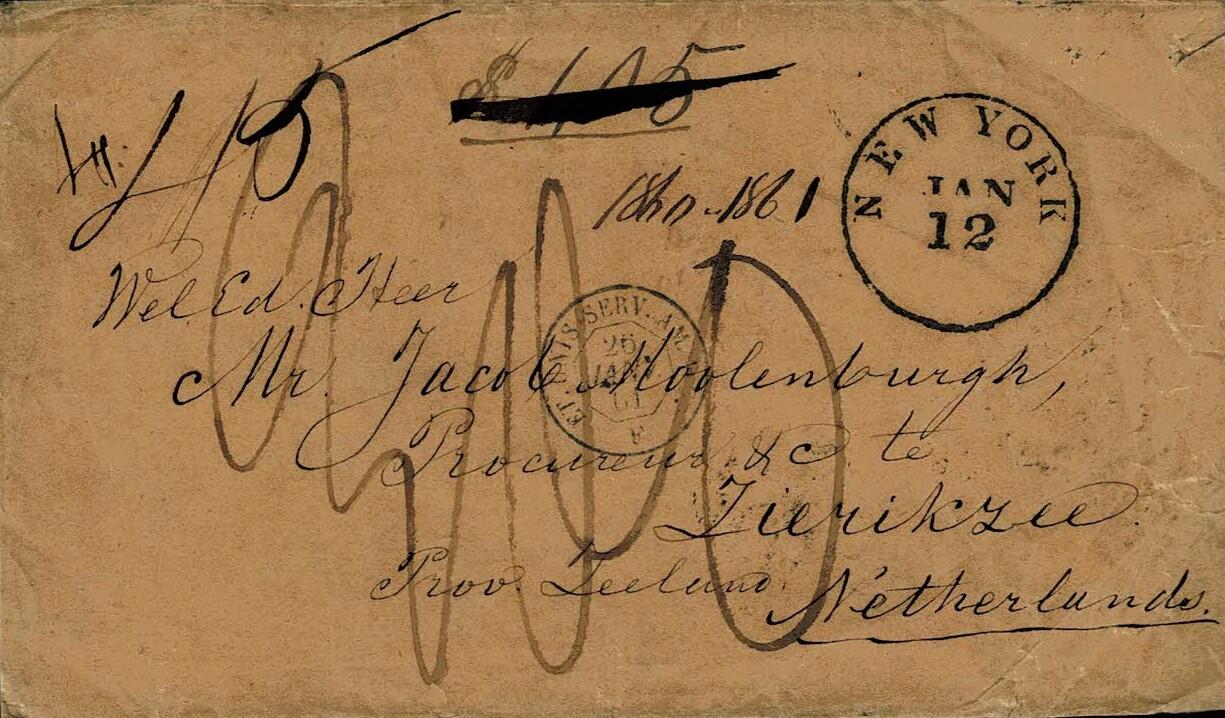 $ 1,05
1860-1861
NEW YORK
JAN
12
Wel Ed. Heer
Mr. Jacob Moolenburgh,
ET. UNIS SERV. AM.
26
JANV.
61
F
Procureur &c te
Zierikzee
Prov. Zeeland
Netherlands.